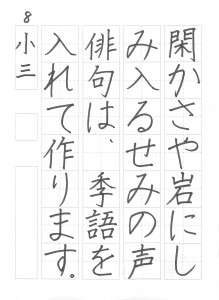 閑かさや岩にし
み入るせみの声
俳句は、季語を
入れて作ります。
8
小三